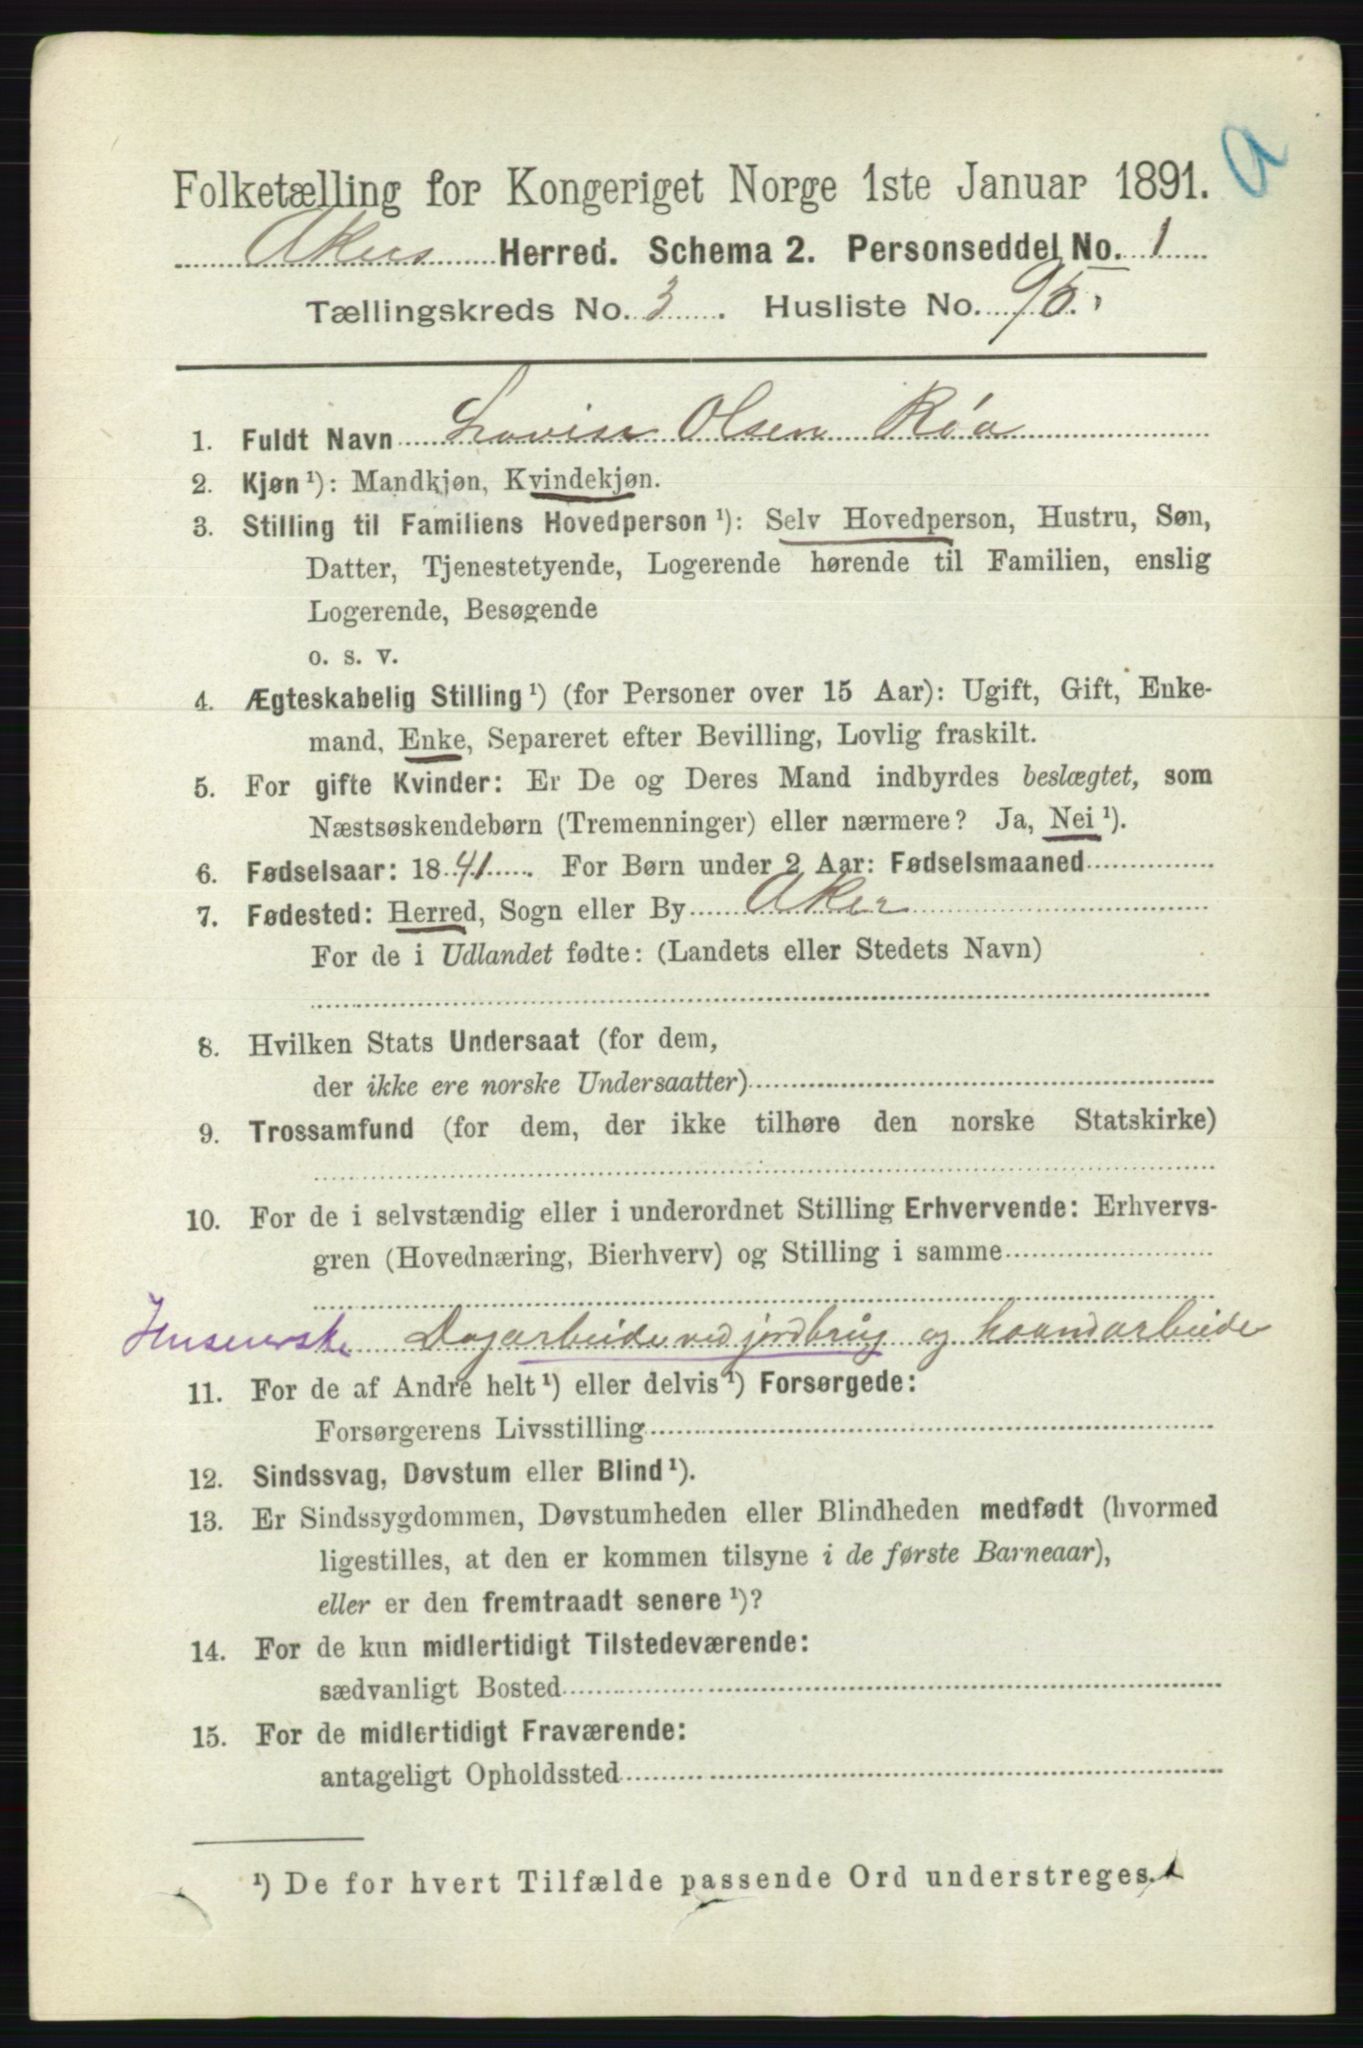 a
Folketælling for Kongeriget Norge 1ste Januar 1891.
Akers Herred. Schema 2. Personseddel No. 1
Tællingskreds No. 3. Husliste No. 95.
1. Fuldt Navn Lovise Olsen Røa
2. Kjøn ¹): Mandkjøn, Kvindekjøn.
3. Stilling til Familiens Hovedperson ¹): Selv Hovedperson, Hustru, Søn,
Datter, Tjenestetyende, Logerende hørende til Familien, enslig
Logerende, Besøgende
o. s. v.
4. Ægteskabelig Stilling ¹) (for Personer over 15 Aar): Ugift, Gift, Enke-
mand, Enke, Separeret efter Bevilling, Lovlig fraskilt.
5. For gifte Kvinder: Er De og Deres Mand indbyrdes beslægtet, som
Næstsøskendebørn (Tremenninger) eller nærmere? Ja, Nei ¹).
6. Fødselsaar: 1841. For Børn under 2 Aar: Fødselsmaaned
7. Fødested: Herred, Sogn eller By Aker
For de i Udlandet fødte: (Landets eller Stedets Navn)
8. Hvilken Stats Undersaat (for dem,
der ikke ere norske Undersaatter)
9. Trossamfund (for dem, der ikke tilhøre den norske Statskirke)
10. For de i selvstændig eller i underordnet Stilling Erhvervende: Erhvervs-
gren (Hovednæring, Bierhverv) og Stilling i samme
Dagarbeide ved jordbrug og haandarbeide
11. For de af Andre helt ¹) eller delvis ¹) Forsørgede:
Forsørgerens Livsstilling
12. Sindssvag, Døvstum eller Blind ¹).
13. Er Sindssygdommen, Døvstumheden eller Blindheden medfødt (hvormed
ligestilles, at den er kommen tilsyne i de første Barneaar),
eller er den fremtraadt senere ¹)?
14. For de kun midlertidigt Tilstedeværende:
sædvanligt Bosted
15. For de midlertidigt Fraværende:
antageligt Opholdssted
¹) De for hvert Tilfælde passende Ord understreges.